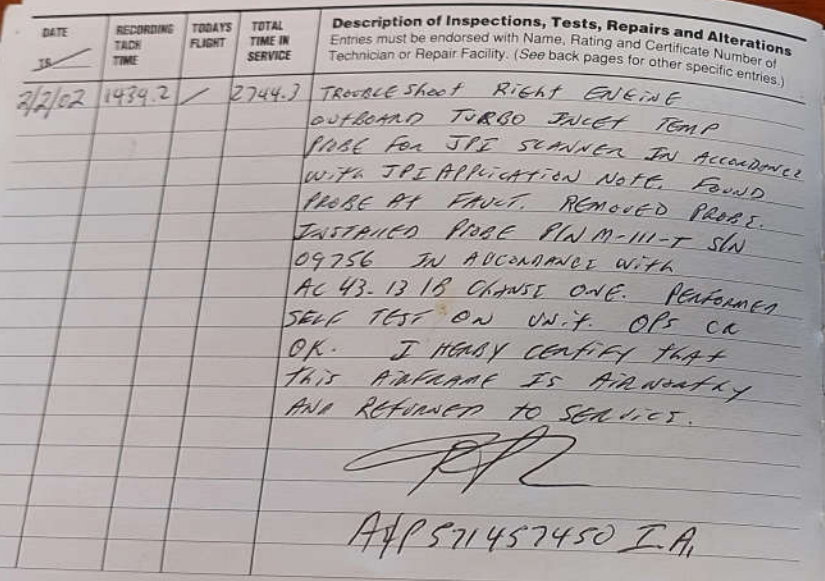 DATE
19
RECORDING TACH TIME
TODAYS FLIGHT
TOTAL TIME IN SERVICE
Description of Inspections, Tests, Repairs and Alterations
Entries must be endorsed with Name, Rating and Certificate Number of
Technician or Repair Facility. (See back pages for other specific entries.)
2/2/02 1439.2 / 2744.3 TROUBLE Shoot Right ENGINE
OUTBOARD TURBO INLET TEMP
PROBE FOR JPI SCANNER IN ACCORDANCE
With JPI APPLICATION NOTE. FOUND
PROBE At FAULT. REMOVED PROBE.
INSTALLED PROBE P/N M-111-T S/N
09756 IN ACCORDANCE With
AC 43-13 1B CHANGE ONE. PERFORMED
SELF TEST ON UNIT. OPS CK
OK. I HEABY CERTIFY that
this AIRFRAME IS AIRWORTHY
AND RETURNED TO SERVICE.
A&P 571457450 I.A.